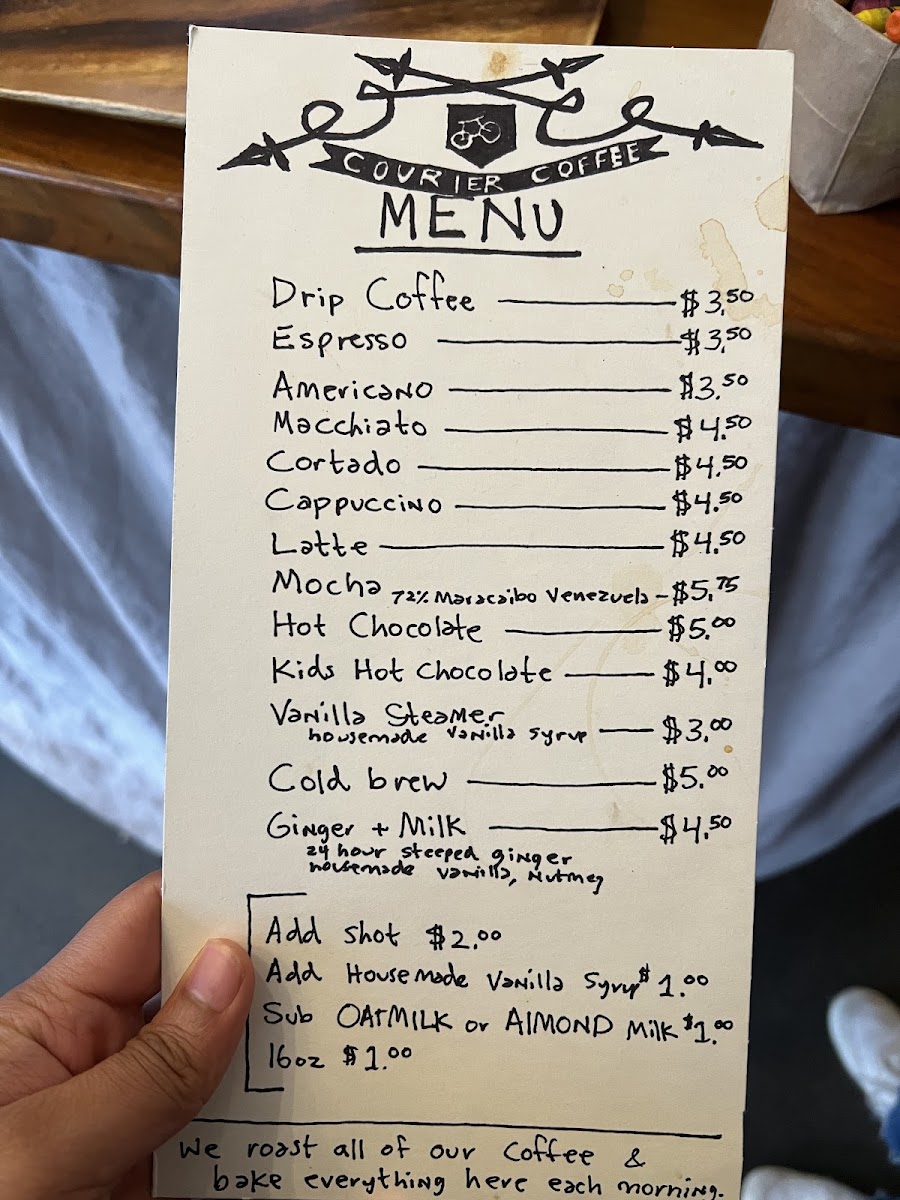 COURIER COFFEE
MENU
Drip Coffee $3.50
Espresso $3.50
Americano $3.50
Macchiato $4.50
Cortado $4.50
Cappuccino $4.50
Latte $4.50
Mocha 72% Maracaibo Venezuela - $5.75
Hot Chocolate $5.00
Kids Hot Chocolate $4.00
Vanilla Steamer
housemade vanilla syrup $3.00
Cold brew $5.00
Ginger + Milk $4.50
24 hour steeped ginger
housemade vanilla, Nutmeg
Add shot $2.00
Add Housemade Vanilla Syrup $1.00
Sub OATMILK or AlMOND Milk $1.00
16oz $1.00
We roast all of our coffee &
bake everything here each morning.